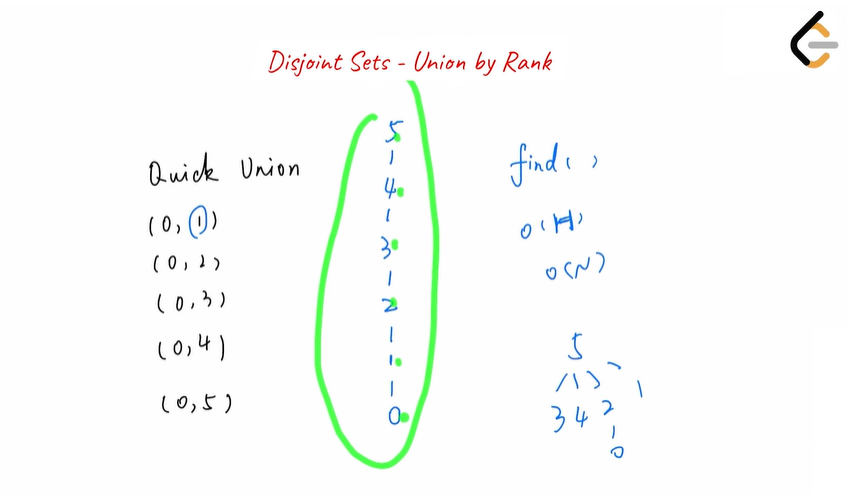 Disjoint Sets - Union by Rank
Quick Union
(0, 1)
(0, 2)
(0, 3)
(0, 4)
(0, 5)
5
4
3
2
1
0
find( )
O(H)
O(N)
5
3 4 2 1
0